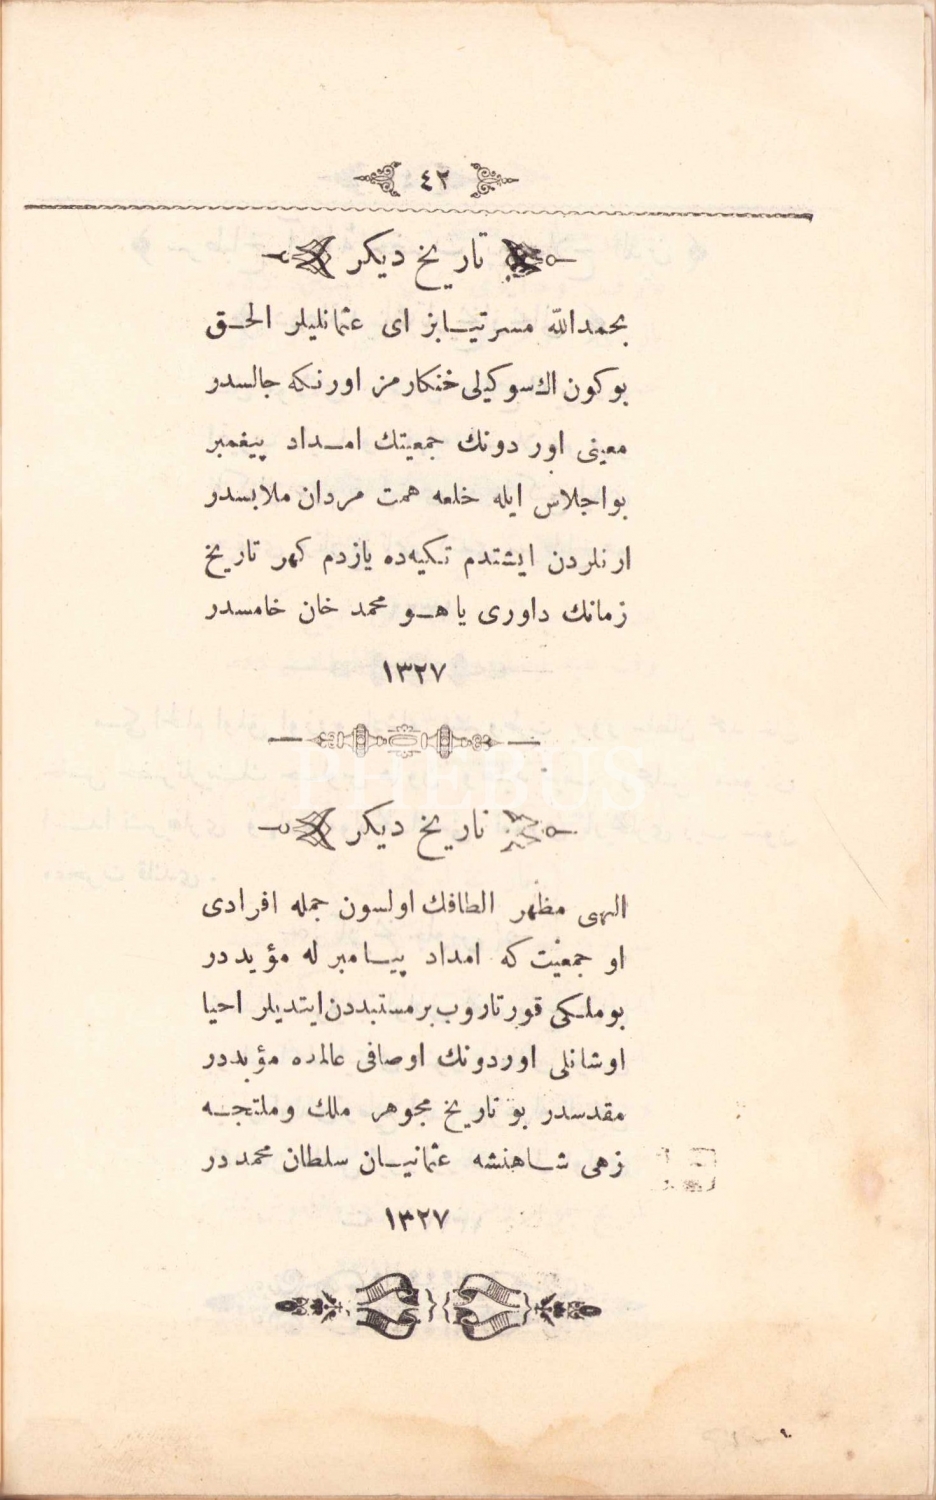 ٤٢
تاریخ دیكر
بحمدالله مسرتیـابز ای عثمانلیلر الحـق
بو كون اك سوكیلی خنكارمز اورنكه جالسدر
معینی اوردونك جمعیتك امـداد پیغمبر
بو اجلاس ایله خلعه همت مردان ملابسدر
ارنلردن ایشتدم تكیه‌ده یازدم كهر تاریخ
زمانك داوری یا هـو محمد خان خامسدر
١٣٢٧
PHEBUS
تاریخ دیكر
الهی مظهر الطافك اولسون جمله افرادی
او جمعیت كه امداد پیـامبر له مؤیددر
بو ملـكی قورتاروب بر مستبددن ایتدیلر احیا
او شانلی اوردونك اوصافی عالمده مؤبددر
مقدسدر بو تاریخ مجوهر ملك وملتجـه
زهی شـاهنشه عثمانیـان سلطان محمددر
١٣٢٧